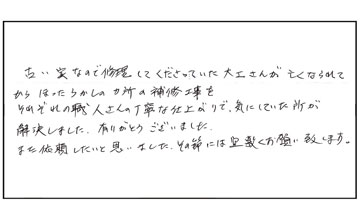 古い家なので修理してくださっていた大工さんが亡くなられて
から ほったらかしのカ所の補修工事を
それぞれの職人さんの丁寧な仕上がりで、気にしていた所が
解決しました。有りがとうございました。
また依頼したいと思いました。その節には宜敷くお願い致します。